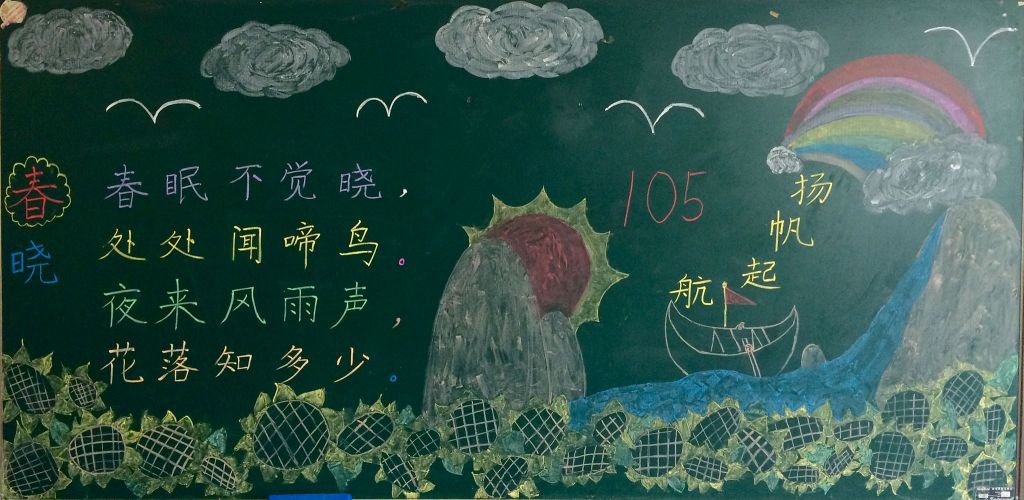 春晓
春眠不觉晓，
处处闻啼鸟。
夜来风雨声，
花落知多少。
105
扬帆起航